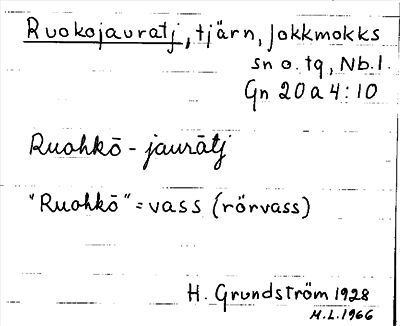 Ruokojauratj, tjärn, Jokkmokks
sn o. tg, Nb.l.
Gn 20a4:10
Ruohkō-jaurātj
"Ruohkō" = vass (rörvass)
H. Grundström 1928
M.L.1966